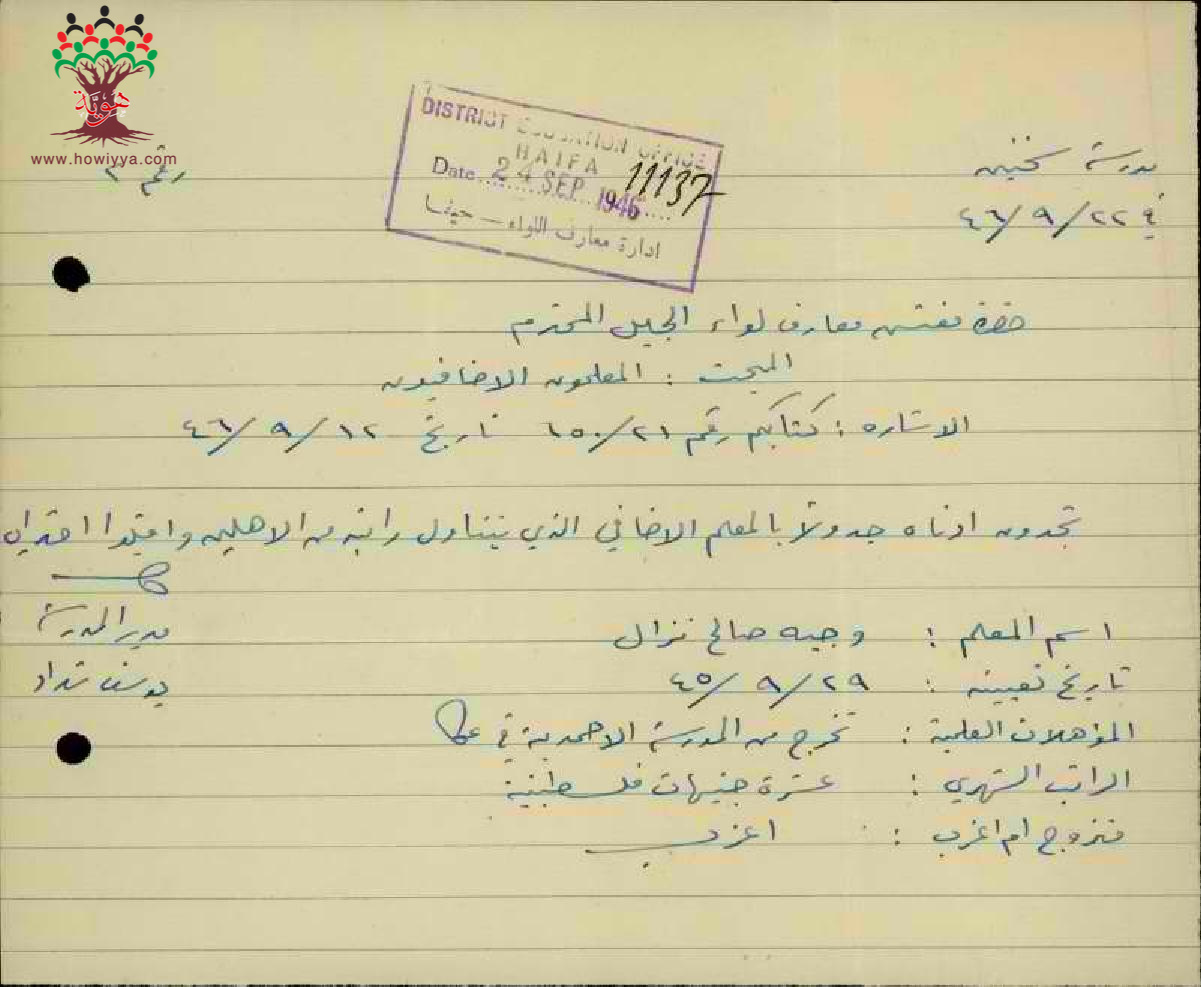 هوية
www.howiyya.com
DISTRICT EDUCATION OFFICE
HAIFA
Date 24 SEP 1946
11137
ادارة معارف اللواء — حيفا
مدرسة سخنين
في ٢٢/٩/٤٦
رقم ٣
حضرة مفتش معارف لواء الجليل المحترم
المبحث : المعلمون الاضافيون
الاشاره : كتابكم رقم ٦٥٠/٢١ تاريخ ١٢/٩/٤٦
تجدون ادناه جدولاً بالمعلم الاضافي الذي يتناول راتبه من الاهلين واقبلوا احترامي
مدير المدرسة
يوسف شداد
اسم المعلم : وجيه صالح نزال
تاريخ تعيينه : ٢٩/٩/٤٥
المؤهلات العلمية : تخرج من المدرسة الاحمدية في عكا
الراتب الشهري : عشرة جنيهات فلسطينية
متزوج ام اعزب : اعزب